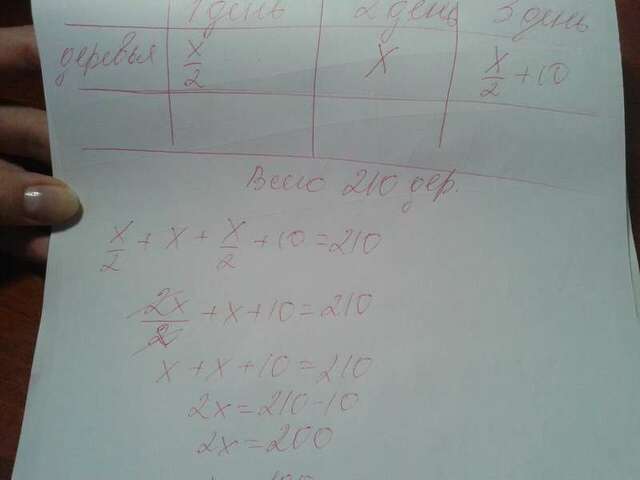 1 день 2 день 3 день
деревья x/2 x x/2 + 10
Всего 210 дер.
x/2 + x + x/2 + 10 = 210
2x/2 + x + 10 = 210
x + x + 10 = 210
2x = 210 - 10
2x = 200